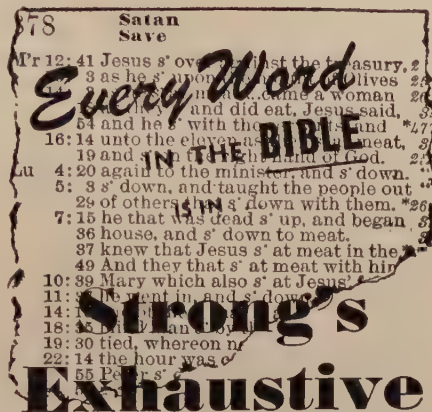 878 Satan
Save
M'r 12: 41 Jesus s' over against the treasury,
3 as he s' upon lives
came a woman
and did eat, Jesus said,
54 and he s' with the and
16: 14 unto the eleven as meat,
19 and hand of God.
Lu 4: 20 again to the minister, and s' down.
5: 3 s' down, and taught the people out
29 of others s' down with them. *26
7: 15 he that was dead s' up, and began
36 house, and s' down to meat.
37 knew that Jesus s' at meat in the
49 And they that s' at meat with him
10: 39 Mary which also s' at Jesus'
11: he went in, and s' down
14:
18:
19: 30 tied, whereon
22: 14 the hour was
55 Peter s'
Every Word
IN THE BIBLE
IS IN
Strong's
Exhaustive